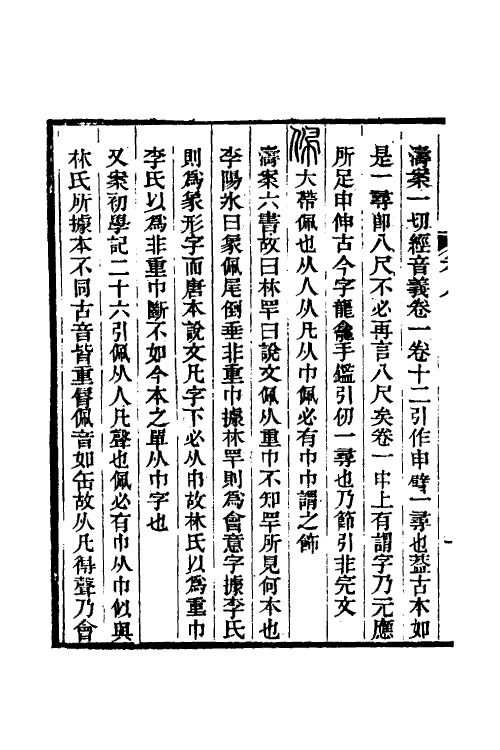 濤案一切經音義卷一卷十二引作申臂一尋也葢古本如
是一尋卽八尺不必再言八尺矣卷一申上有謂字乃元應
所足申伸古今字龍龕手鑑引仞一尋也乃節引非完文
佩大帶佩也从人从凡从巾佩必有巾巾謂之飾
濤案六書故曰林罕曰說文佩从重巾不知罕所見何本也
李陽氷曰象佩尾倒垂非重巾據林罕則爲會意字據李氏
則爲象形字而唐本說文凡字下必从巾故林氏以爲重巾
李氏以爲非重巾斷不如今本之單从巾字也
又案初學記二十六引佩从人凡聲也佩必有巾从巾似與
林氏所據本不同古音皆重脣佩音如缶故从凡得聲乃會